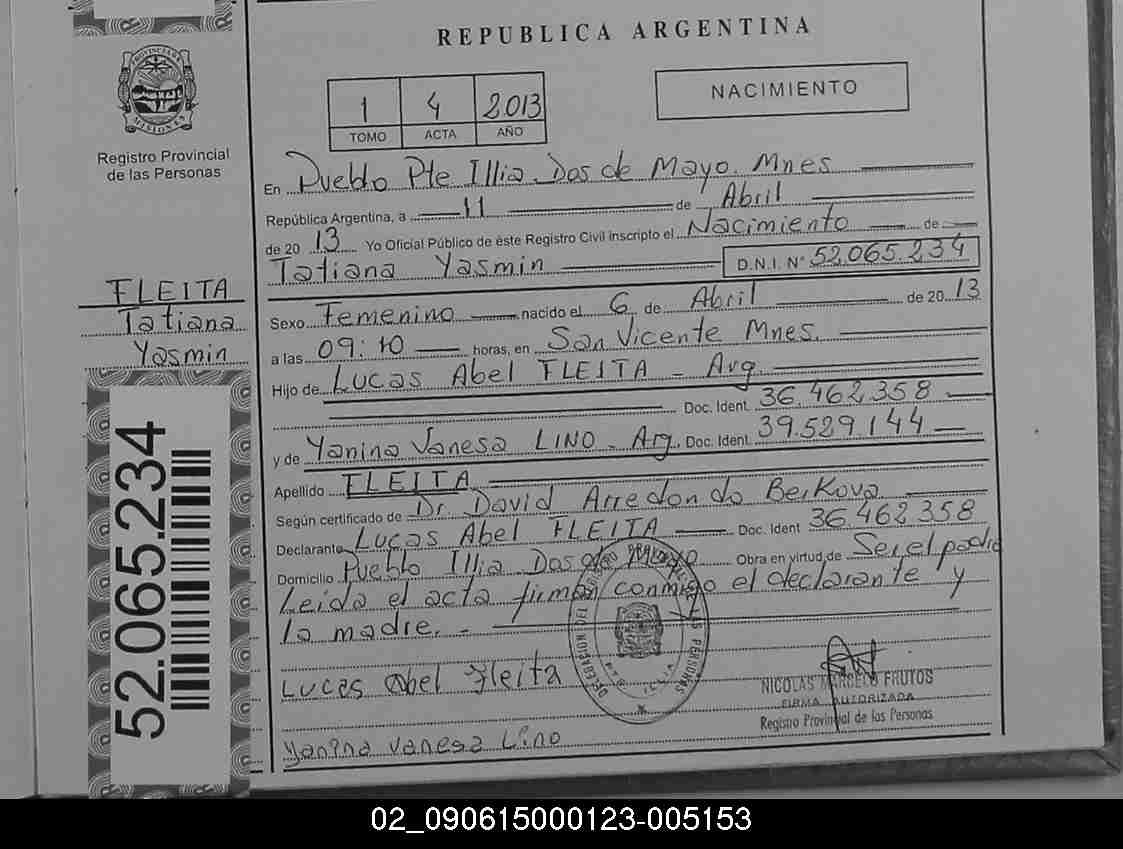 REPUBLICA ARGENTINA
PROVINCIA DE MISIONES
Registro Provincial
de las Personas
1 4 2013
TOMO ACTA AÑO
NACIMIENTO
En Pueblo Pte Illia. Dos de Mayo. Mnes
República Argentina, a 11 de Abril
de 20 13 Yo Oficial Público de éste Registro Civil inscripto el Nacimiento de
Tatiana Yasmin D.N.I. N° 52.065.234
FLEITA
Tatiana
Yasmin
Sexo Femenino nacido el 6 de Abril de 20 13
a las 09:10 horas, en San Vicente Mnes.
Hijo de Lucas Abel FLEITA - Arg.
Doc. Ident. 36.462.358
y de Yanina Vanesa LINO - Arg. Doc. Ident. 39.529.144
Apellido FLEITA
Según certificado de Dr. David Arredondo Berkova
Declarante Lucas Abel FLEITA Doc. Ident 36.462.358
Domicilio Pueblo Illia Dos de Mayo Obra en virtud de Ser el padre
Leida el acta firman conmigo el declarante y
la madre. -
52.065.234
Lucas Abel Fleita
NICOLAS MARCELO FRUTOS
FIRMA AUTORIZADA
Registro Provincial de las Personas
Yanina Vanesa Lino
02_090615000123-005153